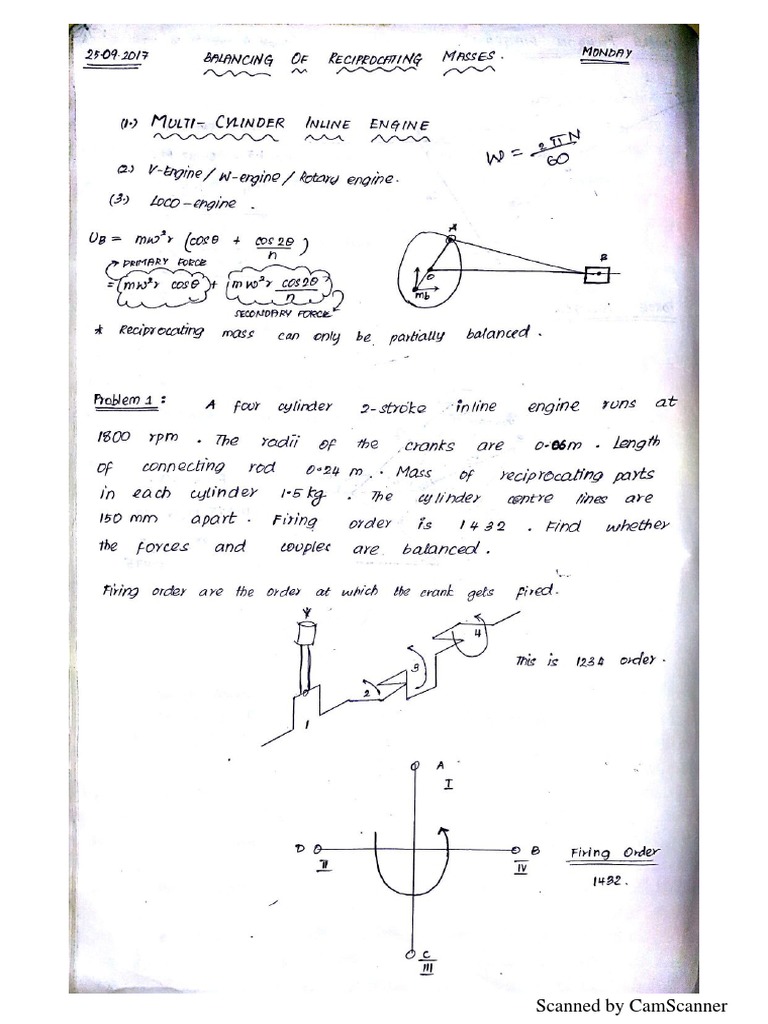 25-09-2017 BALANCING OF RECIPROCATING MASSES. MONDAY
(1.) MULTI-CYLINDER INLINE ENGINE
W = 2πN/60
(2.) V-Engine / W-engine / Rotary engine.
(3.) LOCO-engine.
UB = mω²r (cosθ + cos2θ/n)
PRIMARY FORCE
= (mω²r cosθ) + (mω²r cos2θ/n)
SECONDARY FORCE
A
B
O
mb
* Reciprocating mass can only be partially balanced.
Problem 1: A four cylinder 2-stroke inline engine runs at
1800 rpm. The radii of the cranks are 0.06m. Length
of connecting rod 0.24 m. Mass of reciprocating parts
in each cylinder 1.5 kg. The cylinder centre lines are
150 mm apart. Firing order is 1432. Find whether
the forces and couples are balanced.
Firing order are the order at which the crank gets fired.
4
3
2
1
This is 1234 order.
A
I
D
II
B
IV
Firing Order
1432.
C
III
Scanned by CamScanner